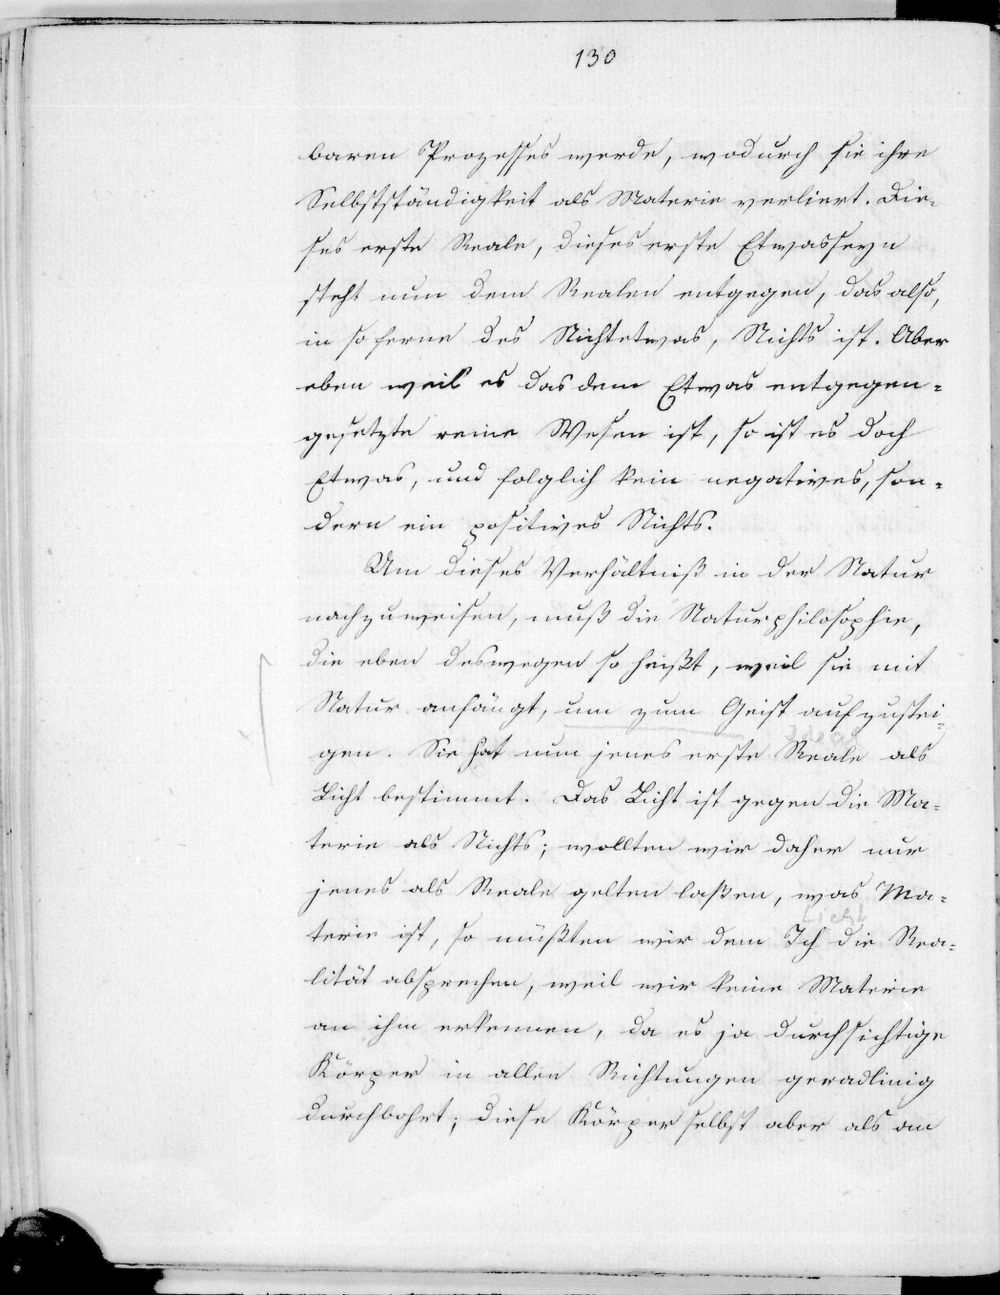 130
baren Prozesses werde, wodurch sie ihre
Selbstständigkeit als Materie verliert. Die-
ses erste Reale, dieses erste Etwasseyn
steht nun dem Realen entgegen, das also,
in soferne des Nichtetwas, Nichts ist. Aber
eben weil es das dem Etwas entgegen-
gesetzte reine Wesen ist, so ist es doch
Etwas, und folglich kein negatives, son-
dern ein positives Nichts.
Um dieses Verhältniß in der Natur
nachzuweisen, muß die Naturphilosophie,
die eben deswegen so heißt, weil sie mit
Natur anfängt, um zum Geist aufzustei-
Ideal
gen. Sie hat nun jenes erste Reale als
Licht bestimmt. Das Licht ist gegen die Ma-
terie als Nichts; wollten wir daher nur
jenes als Reale gelten laßen, was Ma-
Licht
terie ist, so müßten wir dem Ich die Rea-
lität absprechen, weil wir keine Materie
an ihm erkennen, da es ja durchsichtige
Körper in allen Richtungen geradlinig
durchbohrt; diese Körper selbst aber als an